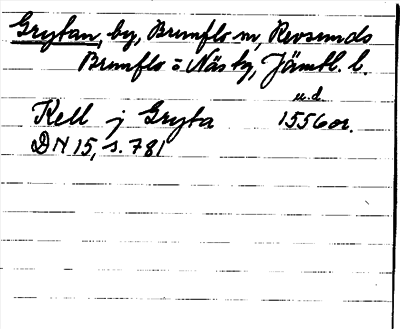 Grytan, by, Brunflo sn, Revsunds
Brunflo o Näs tg, Jämtl. l.
u. d.
Kell j Gryta 1556 or.
DN 15, s. 781